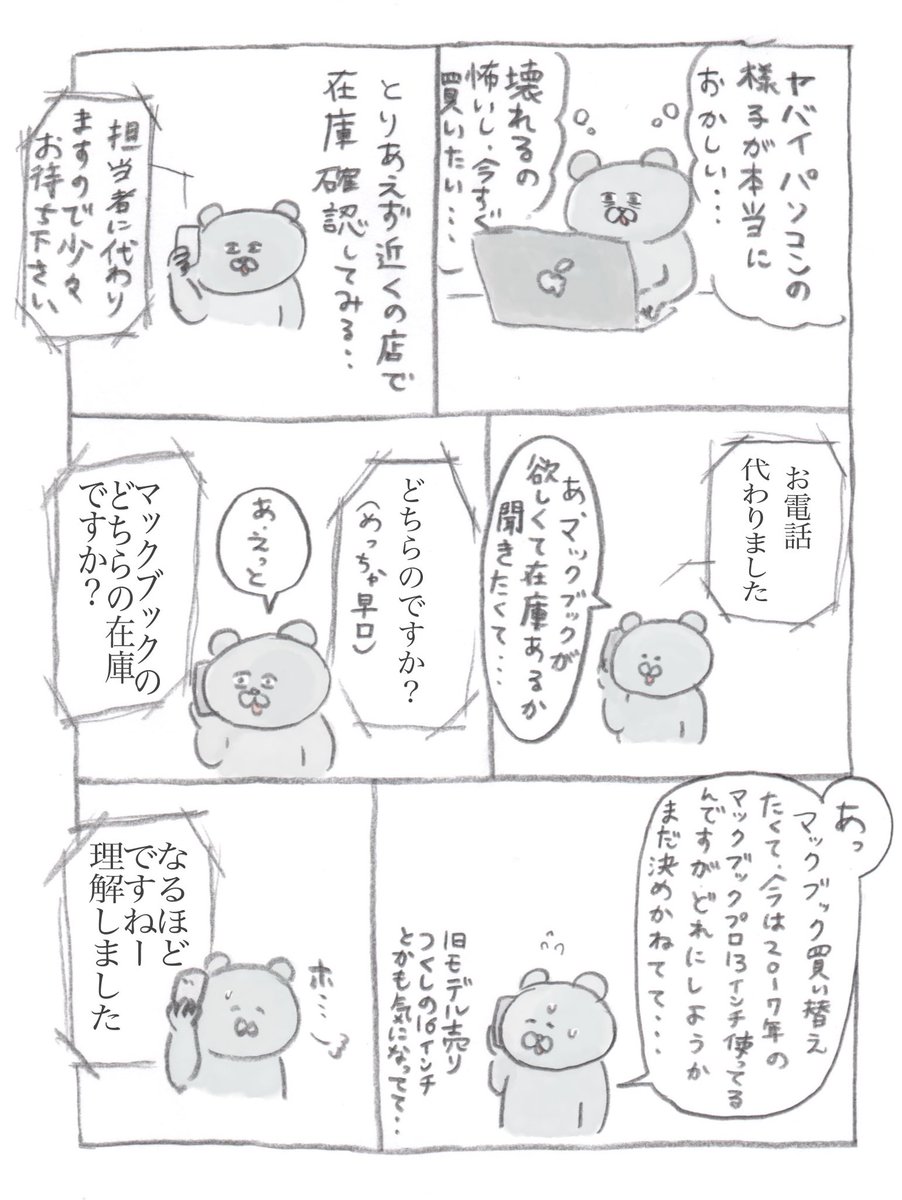 ヤバイパソコンの
様子が本当に
おかしい・・・
壊れるの
怖いし、今すぐ
買いたい・・・
とりあえず近くの店で
在庫確認してみる・・
担当者に代わり
ますので少々
お待ち下さい
お電話
代わりました
あ、マックブックが
欲しくて在庫あるか
聞きたくて・・・
どちらのですか？
(めっちゃ早口)
あ、えっと
マックブックの
どちらの在庫
ですか？
あっ
マックブック買い替え
たくて、今は2017年の
マックブックプロ13インチ使ってる
んですがどれにしようか
まだ決めかねてて・・・
旧モデル売り
つくしの16インチ
とかも気になってて・・
ホ・・・
なるほど
ですねー
理解しました